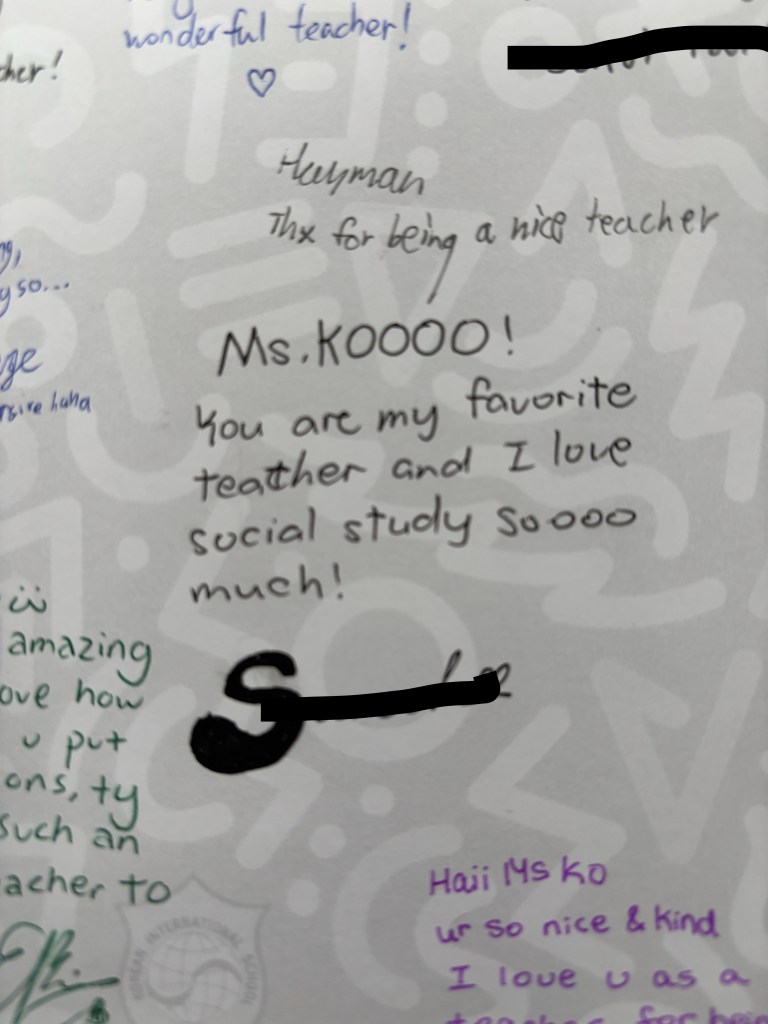 wonderful teacher!
cher!
Hayman
Thx for being a nice teacher
ng,
y so...
ge
rsive haha
Ms. KOOOO!
You are my favorite
teather and I love
social study soooo
much!
S
amazing
ove how
u put
ons, ty
such an
acher to
KOREAN INTERNATIONAL SCHOOL
Haii Ms Ko
ur so nice & kind
I love u as a
teacher for being